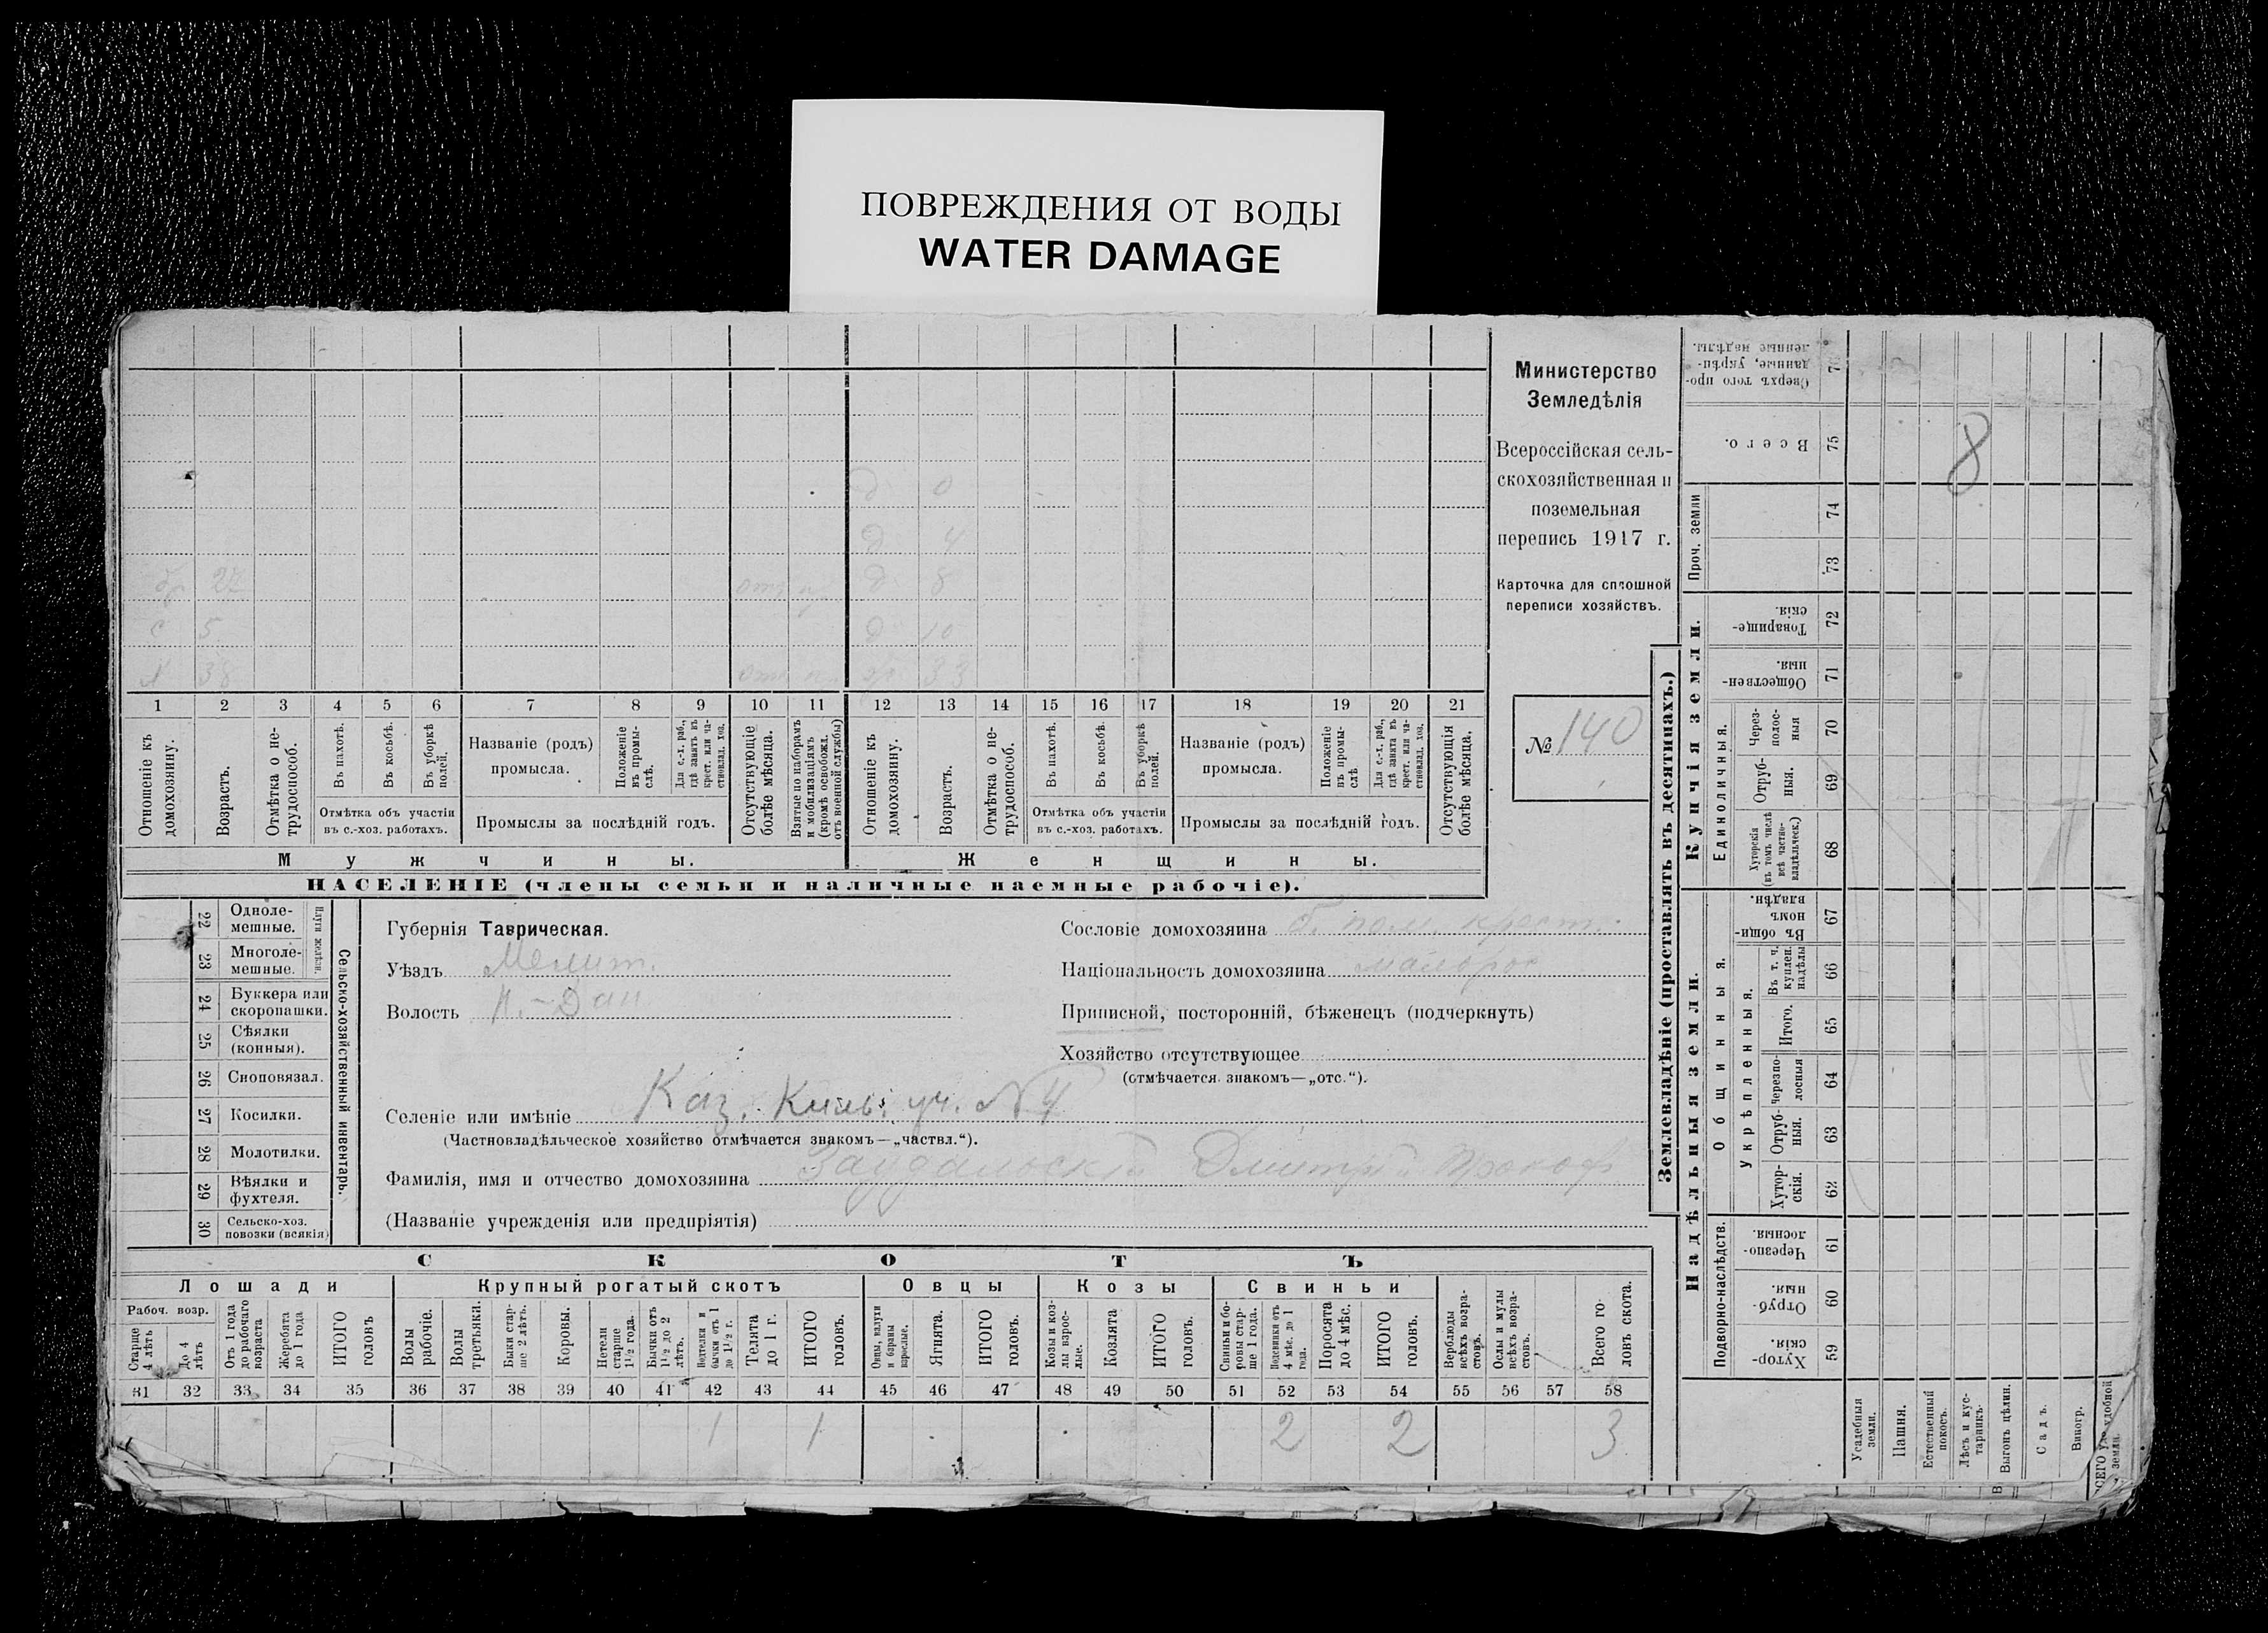 ПОВРЕЖДЕНИЯ ОТ ВОДЫ
WATER DAMAGE
Министерство
Земледѣлія
Всероссійская сель-
скохозяйственная и
поземельная
перепись 1917 г.
Карточка для сплошной
переписи хозяйствъ.
№ 140
д 0
д 4
бр 27 д 8
с 5 д 10
х 38 33
1 2 3 4 5 6 7 8 9 10 11 12 13 14 15 16 17 18 19 20 21
Отношеніе къ домохозяину.
Возрастъ.
Отмѣтка о не-трудоспособ.
Въ пахотѣ.
Въ косьбѣ.
Въ уборкѣ полей.
Названіе (родъ) промысла.
Положеніе въ промы-слѣ.
Для с.-х. раб., гдѣ занятъ въ крест. или ча-стновлад. хоз.
Отсутствующіе болѣе мѣсяца.
Взятые по наборамъ и мобилизаціямъ (кромѣ освобожд. отъ военной службы)
Отношеніе къ домохозяину.
Возрастъ.
Отмѣтка о не-трудоспособ.
Въ пахотѣ.
Въ косьбѣ.
Въ уборкѣ полей.
Названіе (родъ) промысла.
Положеніе въ промы-слѣ
Для с.-х. раб., гдѣ занята въ крест. или ча-стновлад. хоз.
Отсутствующія болѣе мѣсяца.
Отмѣтка объ участіи въ с.-хоз. работахъ.
Промыслы за послѣдній годъ.
Отмѣтка объ участіи въ с.-хоз. работахъ.
Промыслы за послѣдній годъ.
Мужчины.
Женщины.
НАСЕЛЕНІЕ (члены семьи и наличные наемные рабочіе).
Сельско-хозяйственный инвентарь.
Плуги желѣзн.
22 Одноле-мешные.
23 Многоле-мешные.
24 Буккера или скоропашки.
25 Сѣялки (конныя).
26 Сноповязал.
27 Косилки.
28 Молотилки.
29 Вѣялки и фухтеля.
30 Сельско-хоз. повозки (всякія)
Губернія Таврическая.
Уѣздъ Мелит.
Волость
Сословіе домохозяина б. пом. крест.
Національность домохозяина малорос
Приписной, посторонній, бѣженецъ (подчеркнуть)
Хозяйство отсутствующее
(отмѣчается знакомъ—„отс.“).
Селеніе или имѣніе Каз. уч. №4
(Частновладѣльческое хозяйство отмѣчается знакомъ—„частвл.“).
Фамилія, имя и отчество домохозяина Дмитрій Прокоф
(Названіе учрежденія или предпріятія)
СКОТЪ
Лошади
Крупный рогатый скотъ
Овцы
Козы
Свиньи
Рабоч. возр.
Старше 4 лѣтъ
До 4 лѣтъ
Отъ 1 года до рабочаго возраста
Жеребята до 1 года
ИТОГО головъ
Волы рабочіе.
Волы третьяки.
Быки стар-ше 2 лѣтъ.
Коровы.
Нетели старше 1½ года.
Бычки отъ 1½ до 2 лѣтъ.
Подтелки и бычки отъ 1 до 1½ г.
Телята до 1 г.
ИТОГО головъ.
Овцы, валухи и бараны взрослые.
Ягнята.
ИТОГО головъ.
Козы и коз-лы взрос-лые.
Козлята
ИТОГО головъ.
Свиньи и бо-ровы стар-ше 1 года.
Подсвинки отъ 4 мѣс. до 1 года.
Поросята до 4 мѣс.
ИТОГО головъ.
Верблюды всѣхъ возра-стовъ.
Ослы и мулы всѣхъ возра-стовъ.
Всего го-ловъ скота.
31 32 33 34 35 36 37 38 39 40 41 42 43 44 45 46 47 48 49 50 51 52 53 54 55 56 57 58
1 1 2 2 3
Землевладѣніе (проставлять въ десятинахъ.)
Купчія земли.
Надѣльныя земли.
Сверхъ того про-данные, укрѣп-ленные надѣлы.
Всего. 75
8
Проч. земли
74
73
Товарище-скія. 72
Обществен-ныя. 71
Единоличныя.
Через-полос-ныя 70
Отруб-ныя. 69
Хуторскія (въ томъ числѣ всѣ частно-владѣльческ.) 68
Общинныя.
Въ общин-номъ владѣн. 67
Укрѣпленныя.
Въ т. ч. куплен. надѣлы 66
Итого. 65
Черезпо-лосныя 64
Отруб-ныя. 63
Хутор-скія. 62
Подворно-наслѣдств.
Черезпо-лосныя. 61
Отруб-ныя. 60
Хутор-скія. 59
Усадебныя земли.
Пашня.
Естественный покосъ.
Лѣсъ и кус-тарникъ.
Выгонъ цѣлин.
Садъ.
Виногр.
удобной земли.